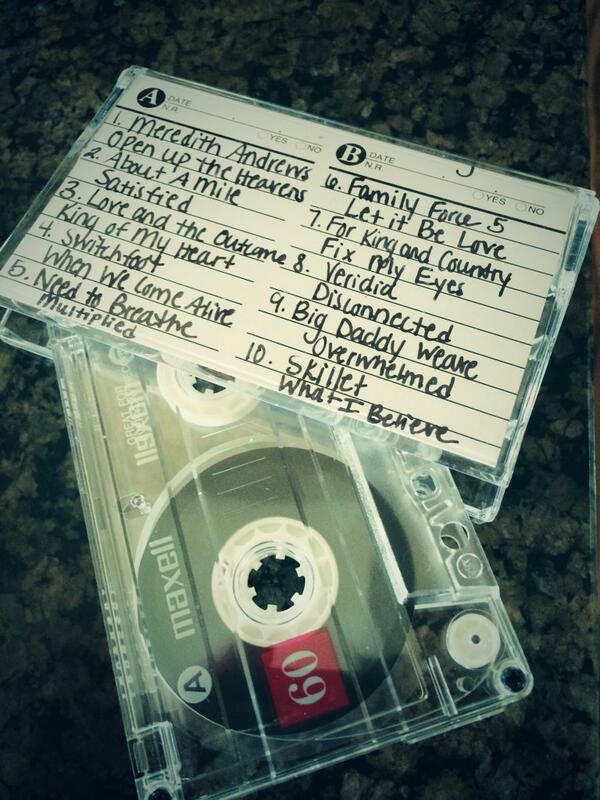 A DATE
N.R.
YES NO
1. Meredith Andrews
Open up the Heavens
2. About A Mile
Satisfied
3. Love and the Outcome
King of My Heart
4. Switchfoot
When We Come Alive
5. Need to Breathe
Multiplied
B DATE
N.R.
YES NO
6. Family Force 5
Let it Be Love
7. For King and Country
Fix My Eyes
8. Veridid
Disconnected
9. Big Daddy Weave
Overwhelmed
10. Skillet
What I Believe
maxell
A
60